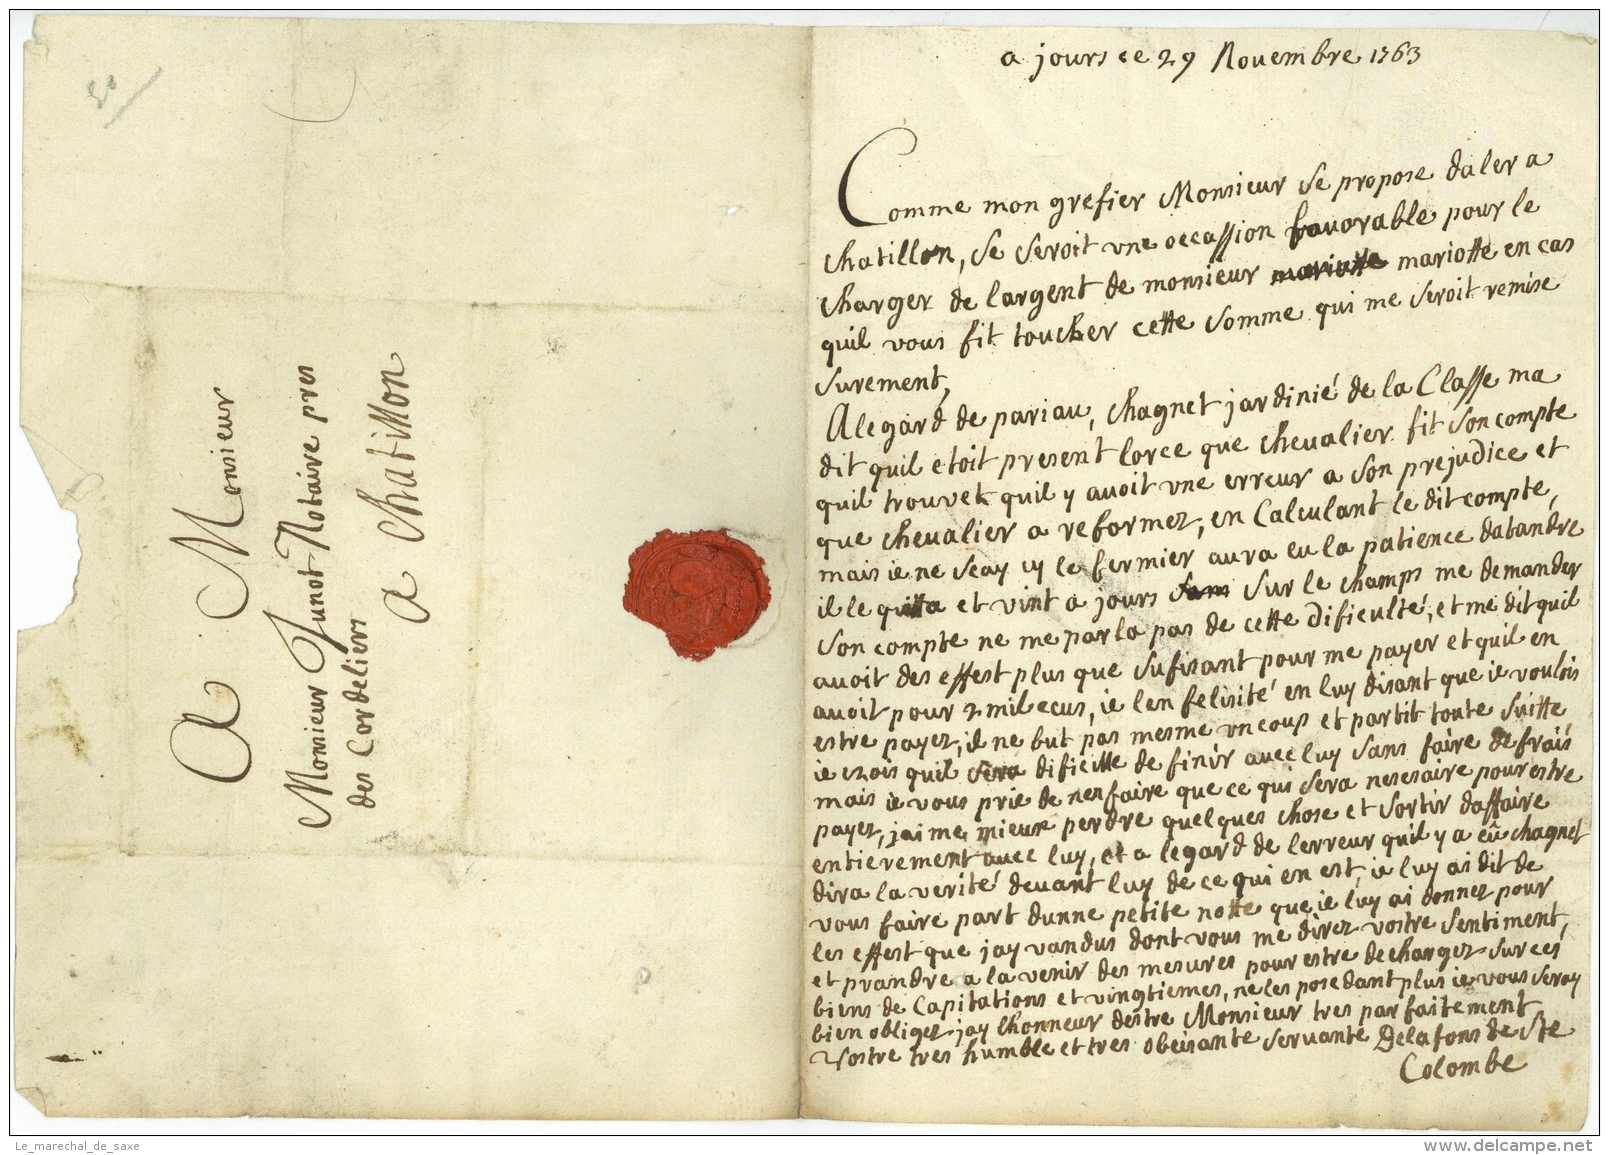 A Monsieur
Monsieur Junot Notaire pres
des Cordeliers
a Chatillon
a jours ce 29 Novembre 1763
Comme mon grefier Monsieur se propose daler a
chatillon, se seroit vne occassion favorable pour le
charger de largent de monsieur mariotte en cas
quil vous fit toucher cette somme qui me seroit remise
surement,
Alegard de pariau, chagnet jardinié de la Classe ma
dit quil etoit present lorce que chevalier fit son compte
quil trouvet quil y avoit vne erreur a son prejudice et
que chevalier a reformez, en Calculant le dit compte,
mais ie ne scay sy le fermier aura eu la patience datandre
il le quitta et vint a jours sur le champs me demander
son compte ne me parla pas de cette dificulté, et me dit quil
avoit des effest plus que sufisant pour me payer et quil en
avoit pour 2 mil ecus, ie len felisité en luy disant que ie voulois
estre payez, il ne but pas mesme vn coup et partit toute suitte,
ie crois quil sera dificille de finir avec luy sans faire de frais
mais ie vous prie de nen faire que ce qui sera nesesaire pour estre
payez, jaime mieux perdre quelques chose et sortir daffaire
entierement avec luy, et a legard de lerreur quil y a eû chagnet
dira la verité devant luy de ce qui en est, ie luy ai dit de
vous faire part dunne petite notte que ie luy ai donnez pour
les effest que jay vandus dont vous me direz vostre sentiment,
et prandre a la venir des mesures pour estre dechargez sur ces
biens de Capitations et vingtiemes, ne les posedant plus ie vous seray
bien obligez jay lhonneur destre Monsieur tres parfaitement
Vostre tres humble et tres obeisante servante Delafons de Ste
Colombe
Le_marechal_de_saxe
www.delcampe.net